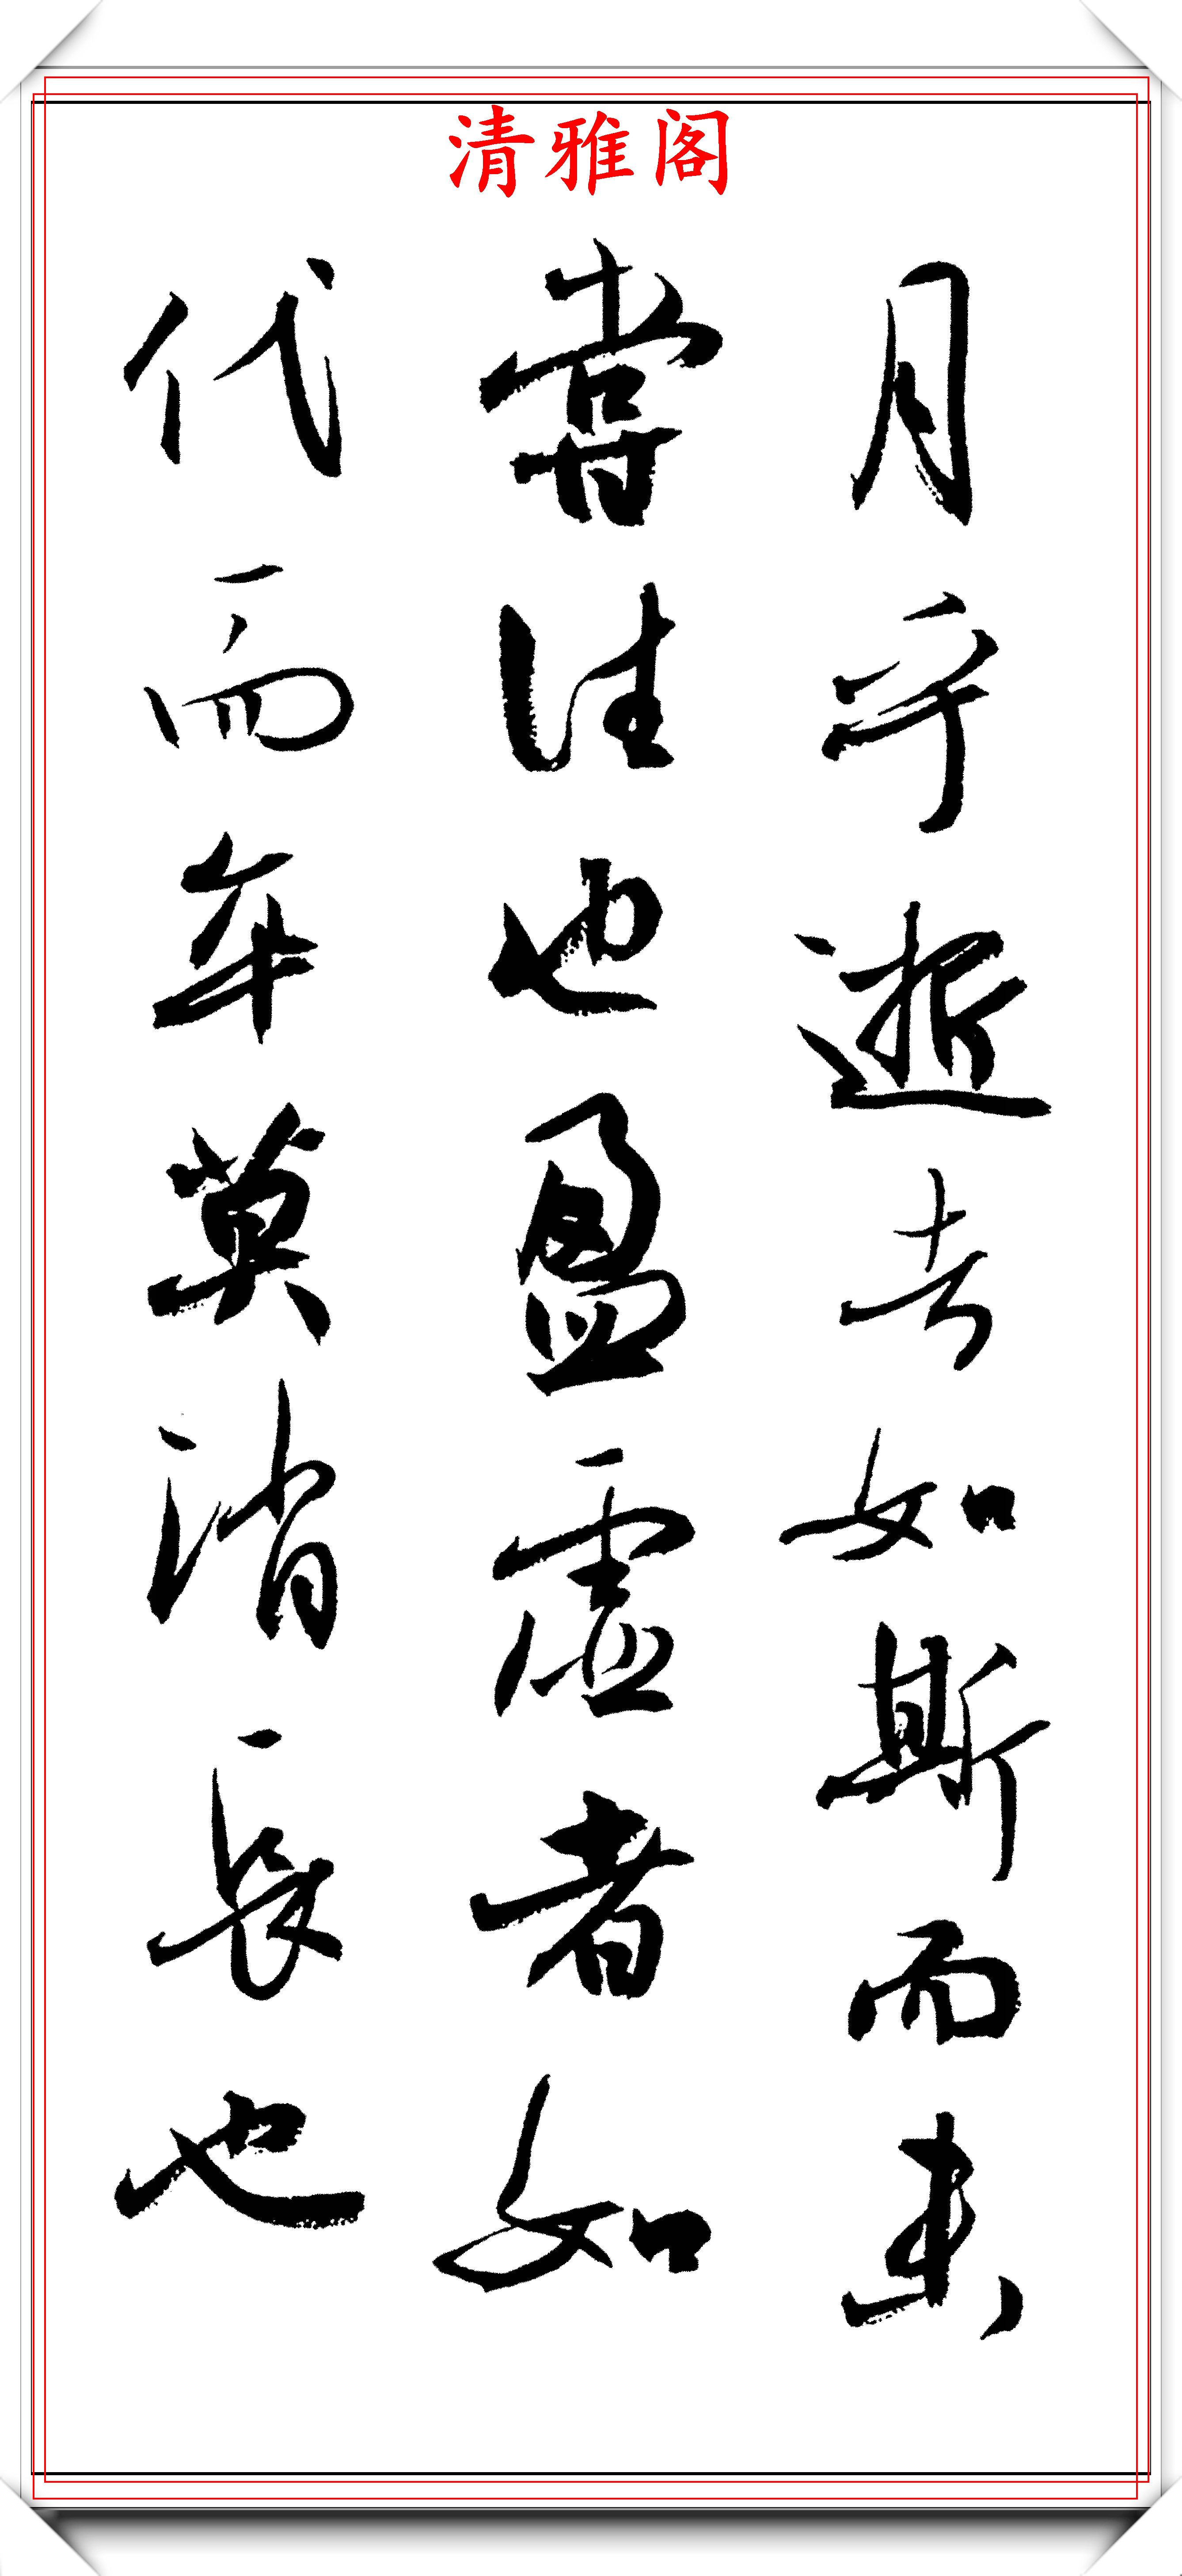 清雅阁
月乎逝者如斯而未
嘗往也盈虛者如
代而卒莫消長也